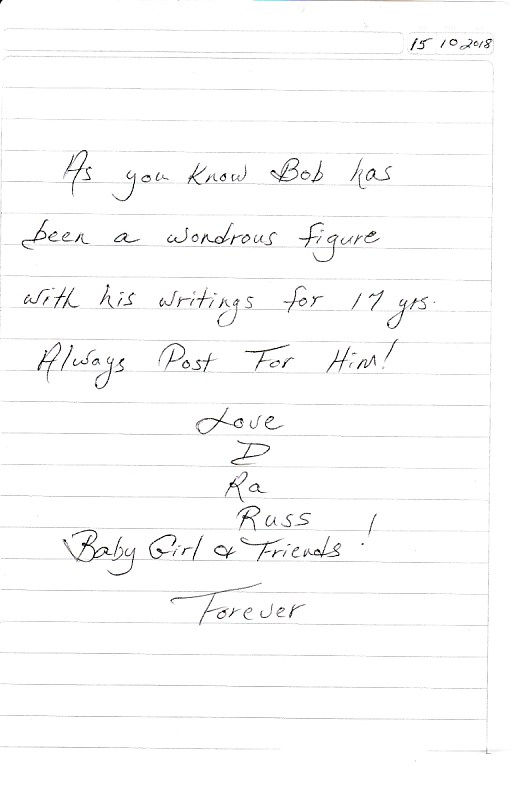 15 10 2018
As you Know Bob has
been a wondrous figure
with his writings for 17 yrs.
Always Post For Him!
Love
D
Ra
Russ
Baby Girl & Friends!
Forever